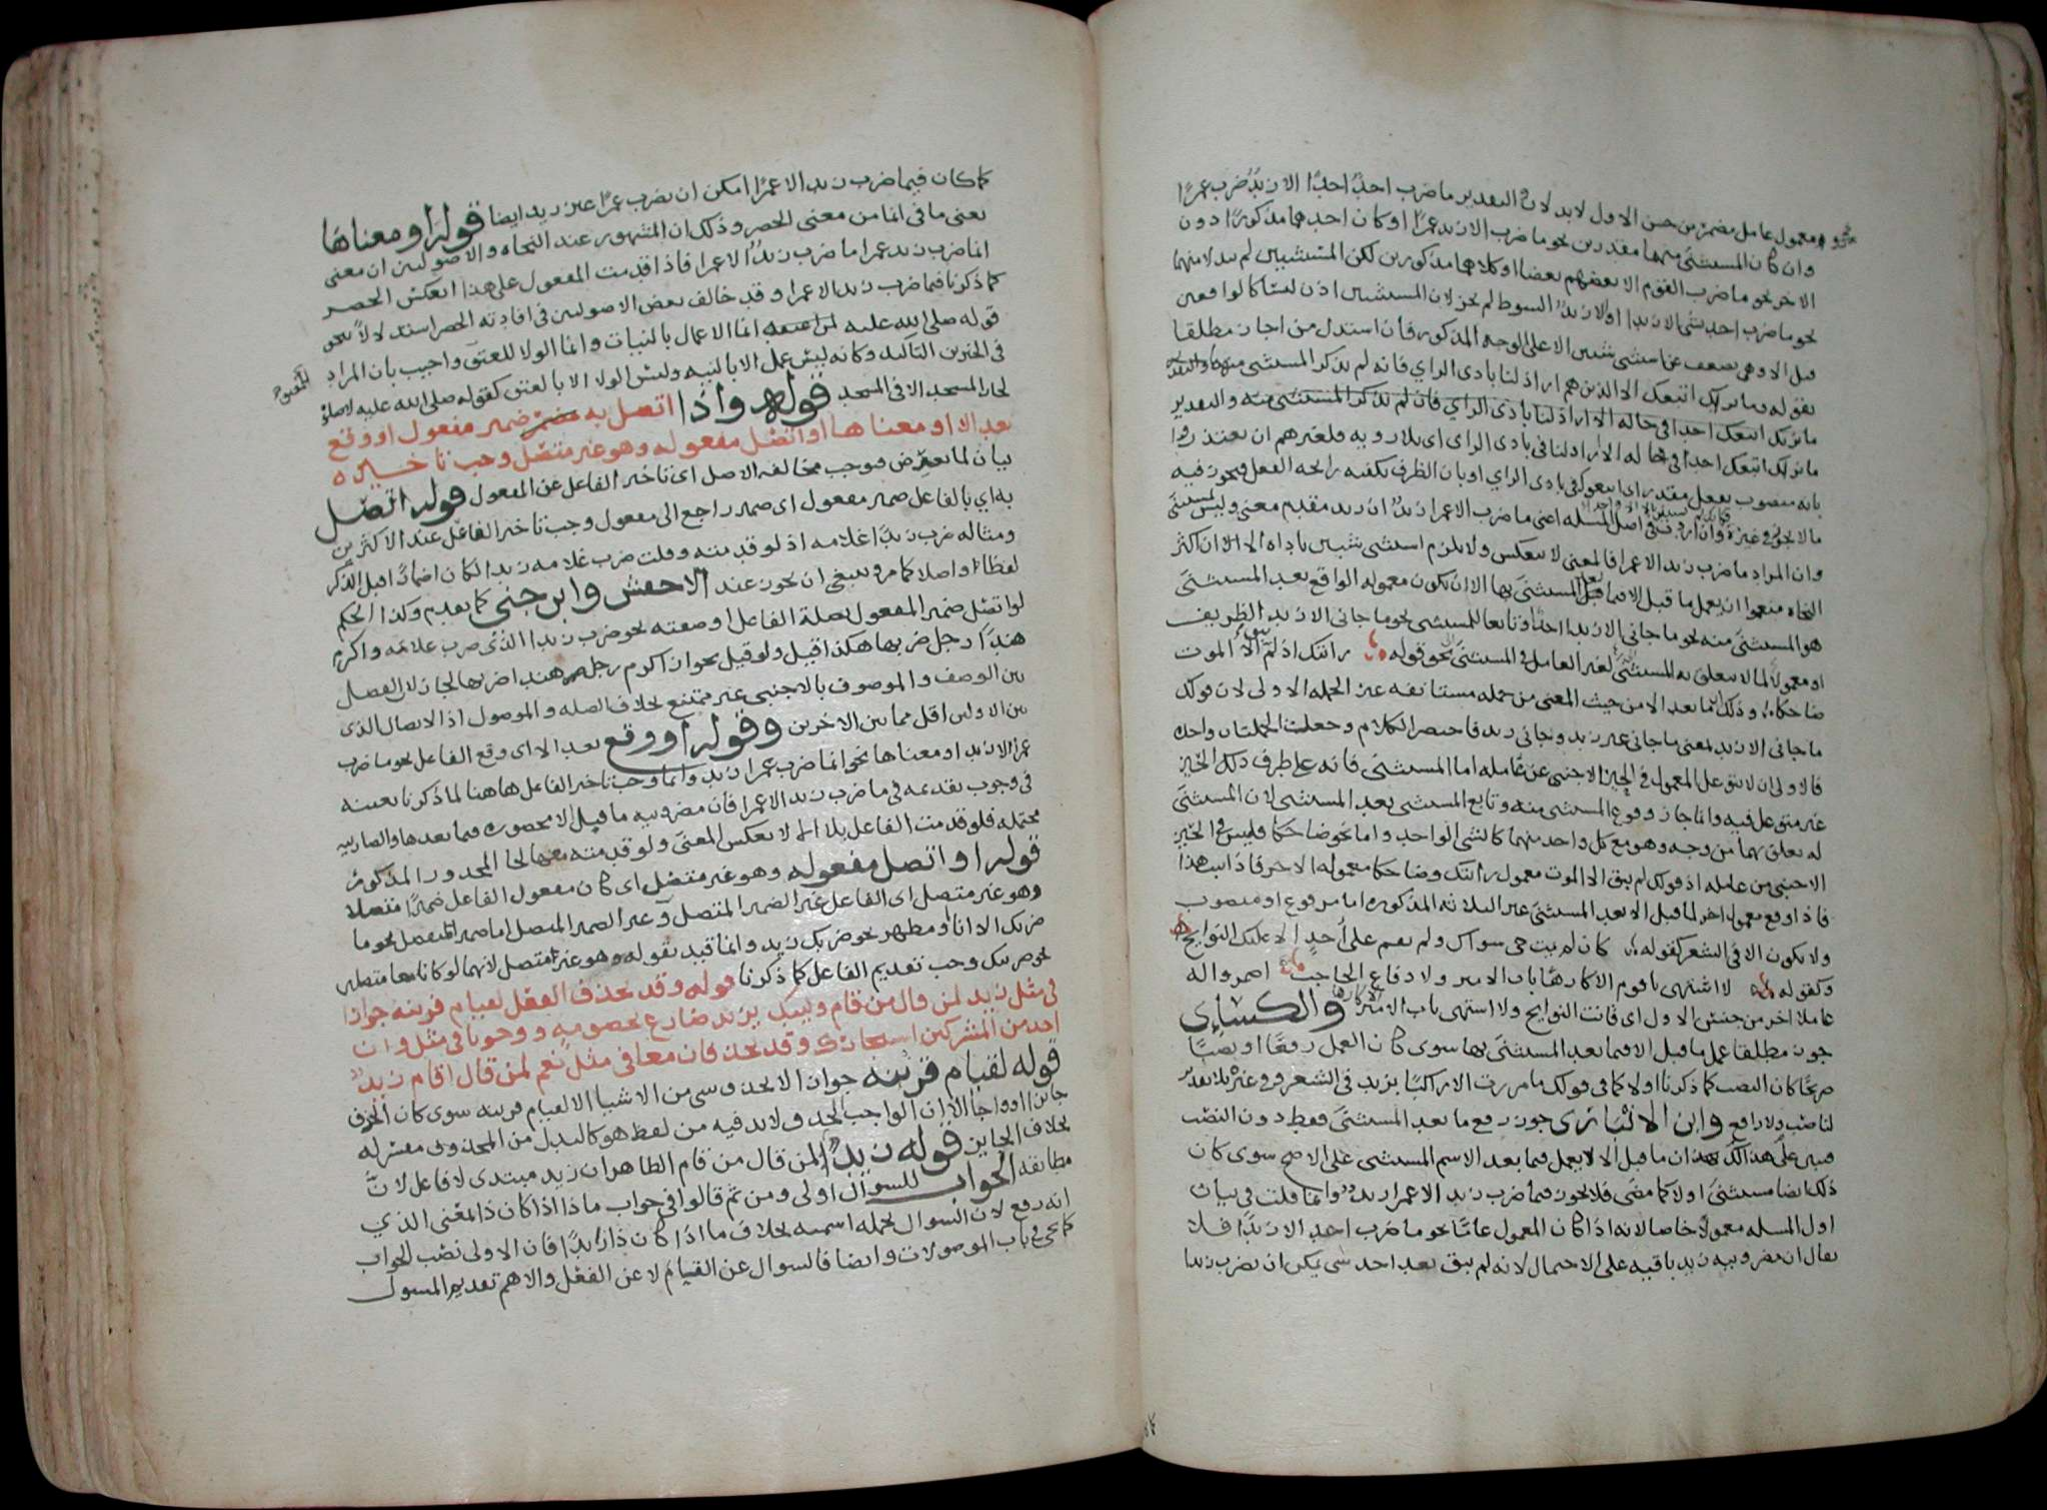 ومعمول عامل مضمر من جنس الاول لابد لان التقدير ما ضرب احدٌ احدًا الا زيدٌ ضرب عمرًا
وان كان المستثنى منهما مقدرين نحو ما ضرب الا زيد عمرًا او كان احدهما مذكورًا دون
الاخر نحو ما ضرب القوم الا بعضهم بعضا او كلاهما مذكورين لكن المستثنيين لم يبدلا منهما
نحو ما ضرب احد شئ الا زيدا او الا زيدٌ السوط لم يجز لان المستثنيين اذن ليسا كالواقعين
قبل الا وهى تضعف عن استثنى شيئين الا على الوجه المذكور فان استدل من اجاز مطلقا
بقوله وما نراك اتبعك الا الذين هم اراذلنا بادى الراي فانه لم يذكر المستثنى منهما والتقدير
ما نريك اتبعك احد فى حاله الا اراذلنا بادى الراي فان لم يذكر المستثنى منه والتقدير
ما نراك اتبعك احد فى حاله الا اراذلنا فى بادى الراى اى بلا رويه فلغيرهم ان يعتذروا
بانه منصوب بفعل مقدر اى اتبعوك فى بادى الراي او بان الظرف يكفيه رايحه الفعل فيجوز فيه
ما لا يجوز فى غيره وان اردت فى اصل المسله اعنى ما ضرب الا عمرا زيدٌ ان زيد مقدم معنى وليس بمستثنى
وان المراد ما ضرب زيد الا عمرا فالمعنى لا ينعكس ولا يلزم استثنى شيئين باداه الا ان اكثر
النحاه منعوا ان يعمل ما قبل الا فيما بعد المستثنى بها الا ان يكون معموله الواقع بعد المستثنى
هو المستثنى منه نحو ما جانى الا زيدا احدٌ او تابعا للمستثنى نحو ما جانى الا زيد الظريف
او معمولا لما لا يتعلق به المستثنى لغير العامل فى المستثنى نحو قوله رايتك اذ لم يبق الا الموت
ضاحكا وذلك لان ما بعد الا من حيث المعنى من جمله مستانفه غير الجمله الاولى لان قولك
ما جانى الا زيد بمعنى ما جانى غير زيد وجانى زيد فاختصر الكلام وجعلت الجملتان واحده
فالاولى ان لا يتوغل المعمول فى الحيز الاجنبى عن عامله اما المستثنى فانه على طرف ذلك الحيز
غير متوغل فيه وانما جاز وقوع المستثنى منه وتابع المستثنى بعد المستثنى لان المستثنى
له تعلق بهما من وجه وهو مع كل واحد منهما كالشى الواحد واما نحو ضاحكا فليس فى الحيز
الاجنبى من عامله اذ قولك لم يبق الا الموت معمول رايتك وضاحكا معموله الاخر فاذا ثبت هذا
فاذا وقع معمول اخر لما قبل الا بعد المستثنى غير الثلاثه المذكوره اما مرفوع او منصوب
ولا يكون الا فى الشعر كقوله كان لم يمت حى سواك ولم تقم على احدٍ الا عليك النوايح
وكقوله لا اشتهى يا قوم الا كارهًا باب الامير ولا دفاع الحاجب اضمروا له
عاملا اخر من جنس الاول اى قامت النوايح ولا اشتهى باب الامير والكسائى
جوز مطلقا عمل ما قبل الا فيما بعد المستثنى بها سوى كان العمل رفعًا او نصبًا
صريحًا كان النصب كما ذكرنا اولا كما فى قولك ما مررت الا راكبًا بزيد فى الشعر وغيره بلا تقدير
لناصب ولا رافع وابن الانبارى جوز رفع ما بعد المستثنى فقط دون النصب
فتبين على هذا ان ما قبل الا لا يعمل فيما بعد الاسم المستثنى على الاصح سوى كان
ذلك ايضا مستثنى اولا كما مضى فلا يجوز فيما ضرب زيد الا عمرا زيدٌ وانما قلت فى بيان
اول المسله معمولًا خاصا لانه اذا كان المعمول عامًا نحو ما ضرب احد الا زيدًا فلا
يقال ان مضروبيه زيد باقيه على الاحتمال لانه لم يبق بعد احد شى يمكن ان يضرب زيدا
كما كان فيما ضرب زيد الا عمرًا امكن ان يضرب عمرًا غير زيد ايضا قوله او معناها
يعنى ما فى انما من معنى الحصر وذلك ان المشهور عند النحاه والاصوليين ان معنى
انما ضرب زيد عمرا ما ضرب زيدٌ الا عمرا فاذا قدمت المفعول على هذا انعكس الحصر
كما ذكرنا فى ما ضرب زيد الا عمرا وقد خالف بعض الاصوليين فى افادته الحصر استدلالًا بنحو
قوله صلى الله عليه انما الاعمال بالنيات وانما الولا للعتق واجيب بان المراد
فى الخبرين التاكيد وكانه ليس عمل الا بالنيه وليس الولا الا بالعتق كقوله صلى الله عليه لا صلاة
لجار المسجد الا فى المسجد قوله واذا اتصل به ضمير مفعول او وقع
بعد الا او معناها او اتصل مفعوله وهو غير متصل وجب تاخيره
بيان لما يعرض فيوجب مخالفه الاصل اى تاخير الفاعل عن المفعول قوله اتصل
به اي بالفاعل ضمير مفعول اى ضمير راجع الى مفعول وجب تاخير الفاعل عند الاكثرين
ومثاله ضرب زيدًا غلامه اذ لو قدمته وقلت ضرب غلامه زيدا لكان اضمارًا قبل الذكر
لفظا واصلا كما مر وينبغى ان يجوز عند الاخفش وابن جنى كما تقدم وكذا الحكم
لو اتصل ضمير المفعول بصلة الفاعل او صفته نحو ضرب زيدا الذى ضرب غلامه واكرم
هندًا رجل ضربها هكذا قيل ولو قيل بجواز اكرم رجل هندا ضربها لجاز لان الفصل
بين الوصف والموصوف بالاجنبى غير ممتنع بخلاف الصله والموصول اذ الاتصال الذى
بين الاولين اقل مما بين الاخرين وقوله او وقع بعد الا اى وقع الفاعل نحو ما ضرب
عمرا الا زيد او معناها نحو انما ضرب عمرا زيد وانما وجب تاخير الفاعل هاهنا لما ذكرنا بعينه
فى وجوب تقديمه فى ما ضرب زيد الا عمرا فان مضروبيه ما قبل الا محصوره فيما بعدها والضاربيه
محتمله فلو قدمت الفاعل بلا الا لانعكس المعنى ولو قدمته معها لجا المحذور المذكور
قوله او اتصل مفعوله وهو غير متصل اى كان مفعول الفاعل ضميرًا متصلا
وهو غير متصل اى الفاعل غير الضمير المتصل وغير الضمير المتصل اما ضمير منفصل نحو ما
ضربك الا انا او مظهر نحو ضربك زيد وانما قيد بقوله وهو غير متصل لانهما لو كانا معا متصلين
نحو ضربتك وجب تقديم الفاعل كما ذكرنا قوله وقد يحذف الفعل لقيام قرينه جوازا
فى مثل زيد لمن قال من قام وليبك يزيد ضارع لخصومه ووجوبا فى مثل وان
احد من المشركين استجارك وقد يحذفان معا فى مثل نعم لمن قال اقام زيدٌ
قوله لقيام قرينه جوازا لا يحذف شى من الاشيا الا لقيام قرينه سوى كان الحذف
جائزا او واجبا الا ان الواجب الحذف لابد فيه من لفظ هو كالبدل من المحذوف مفسر له
بخلاف الجايز قوله زيدٌ لمن قال من قام الظاهر ان زيد مبتدى لا فاعل لان
مطابقه الجواب للسوال اولى ومن ثم قالوا فى جواب ماذا اذا كان ذا بمعنى الذي
انه رفع لان السوال بجمله اسميه بخلاف ما اذا كان ذا زايدًا فان الاولى نصب الجواب
كما يجى فى باب الموصولات وايضا فالسوال عن القيام لا عن الفعل والاهم تقديم المسول